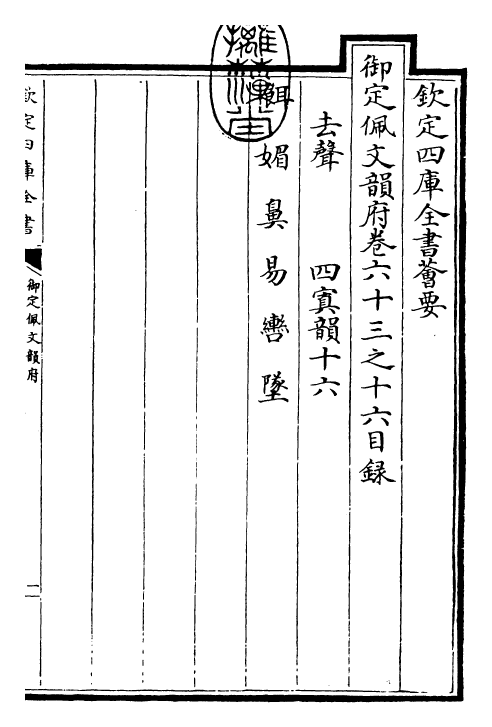 欽定四庫全書薈要
御定佩文韻府卷六十三之十六目錄
去聲 四寘韻十六
媚 鼻 易 轡 墜
欽定四庫全書
御定佩文韻府
一